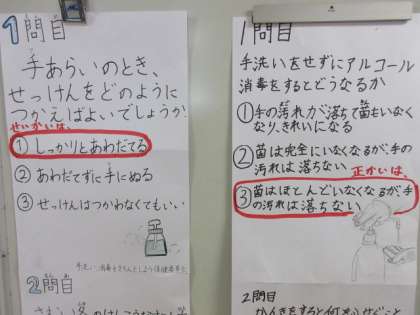 1問目
手あらいのとき、
せっけんをどのように
つかえばよいでしょうか
せいかいは、
①しっかりとあわだてる
②あわだてずに手にぬる
③せっけんはつかわなくてもいい
手洗い・消毒をきちんとしよう保健委員会
2問目
1問目
手洗いをせずにアルコール
消毒をするとどうなるか
①手の汚れが落ちて菌もいなく
なり、きれいになる
②菌は完全にいなくなるが、手
の汚れは落ちない
正かいは、
③菌はほとんどいなくなるが、手
の汚れは落ちない
2問目
かんきをすると何を